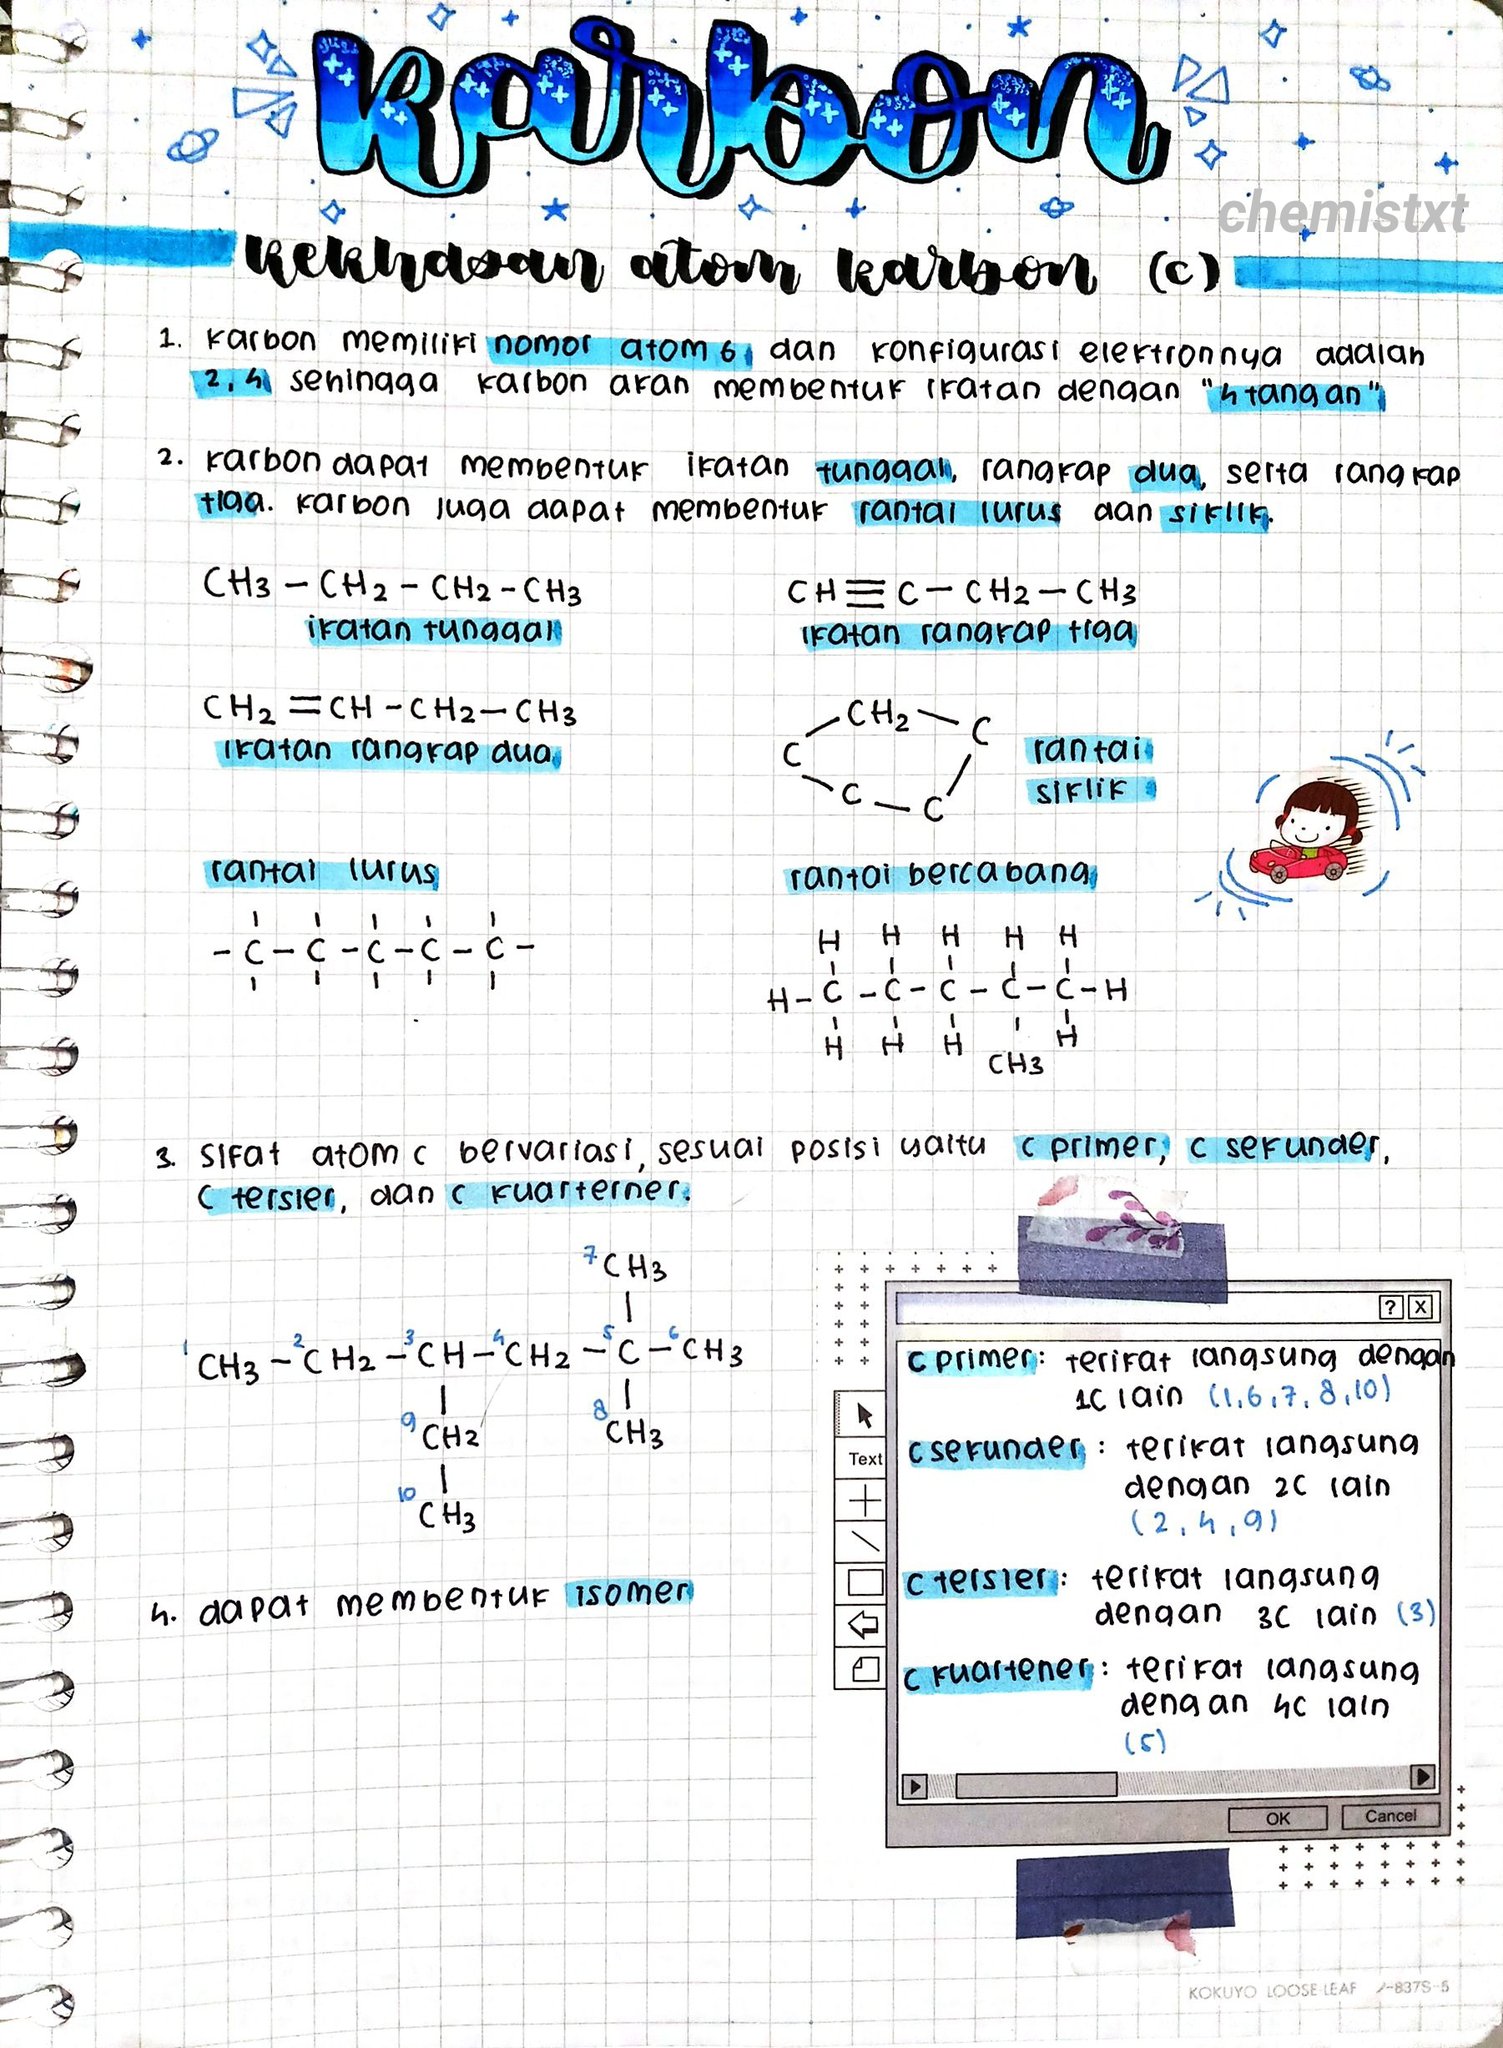 karbon
chemistxt
kekhasan atom karbon (C)
1. karbon memiliki nomor atom 6, dan konfigurasi elektronnya adalah
2,4 sehingga karbon akan membentuk ikatan dengan "4 tangan"
2. karbon dapat membentuk ikatan tunggal, rangkap dua, serta rangkap
tiga. karbon juga dapat membentuk rantai lurus dan siklik.
CH3 – CH2 – CH2 – CH3
ikatan tunggal
CH≡C – CH2 – CH3
ikatan rangkap tiga
CH2 = CH – CH2 – CH3
ikatan rangkap dua
CH2
C C
C – C
rantai
siklik
rantai lurus
– C – C – C – C – C –
rantai bercabang
H H H H H
H – C – C – C – C – C – H
H H H CH3 H
3. sifat atom c bervariasi, sesuai posisi yaitu c primer, c sekunder,
c tersier, dan c kuarterner.
7 CH3
1 CH3 – 2 CH2 – 3 CH – 4 CH2 – 5 C – 6 CH3
9 CH2 8 CH3
10 CH3
4. dapat membentuk isomer
? X
Text
c primer: terikat langsung dengan
1C lain (1,6,7,8,10)
c sekunder: terikat langsung
dengan 2C lain
(2,4,9)
c tersier: terikat langsung
dengan 3C lain (3)
c kuartener: terikat langsung
dengan 4C lain
(5)
OK Cancel
KOKUYO LOOSE-LEAF ノ-837S-5